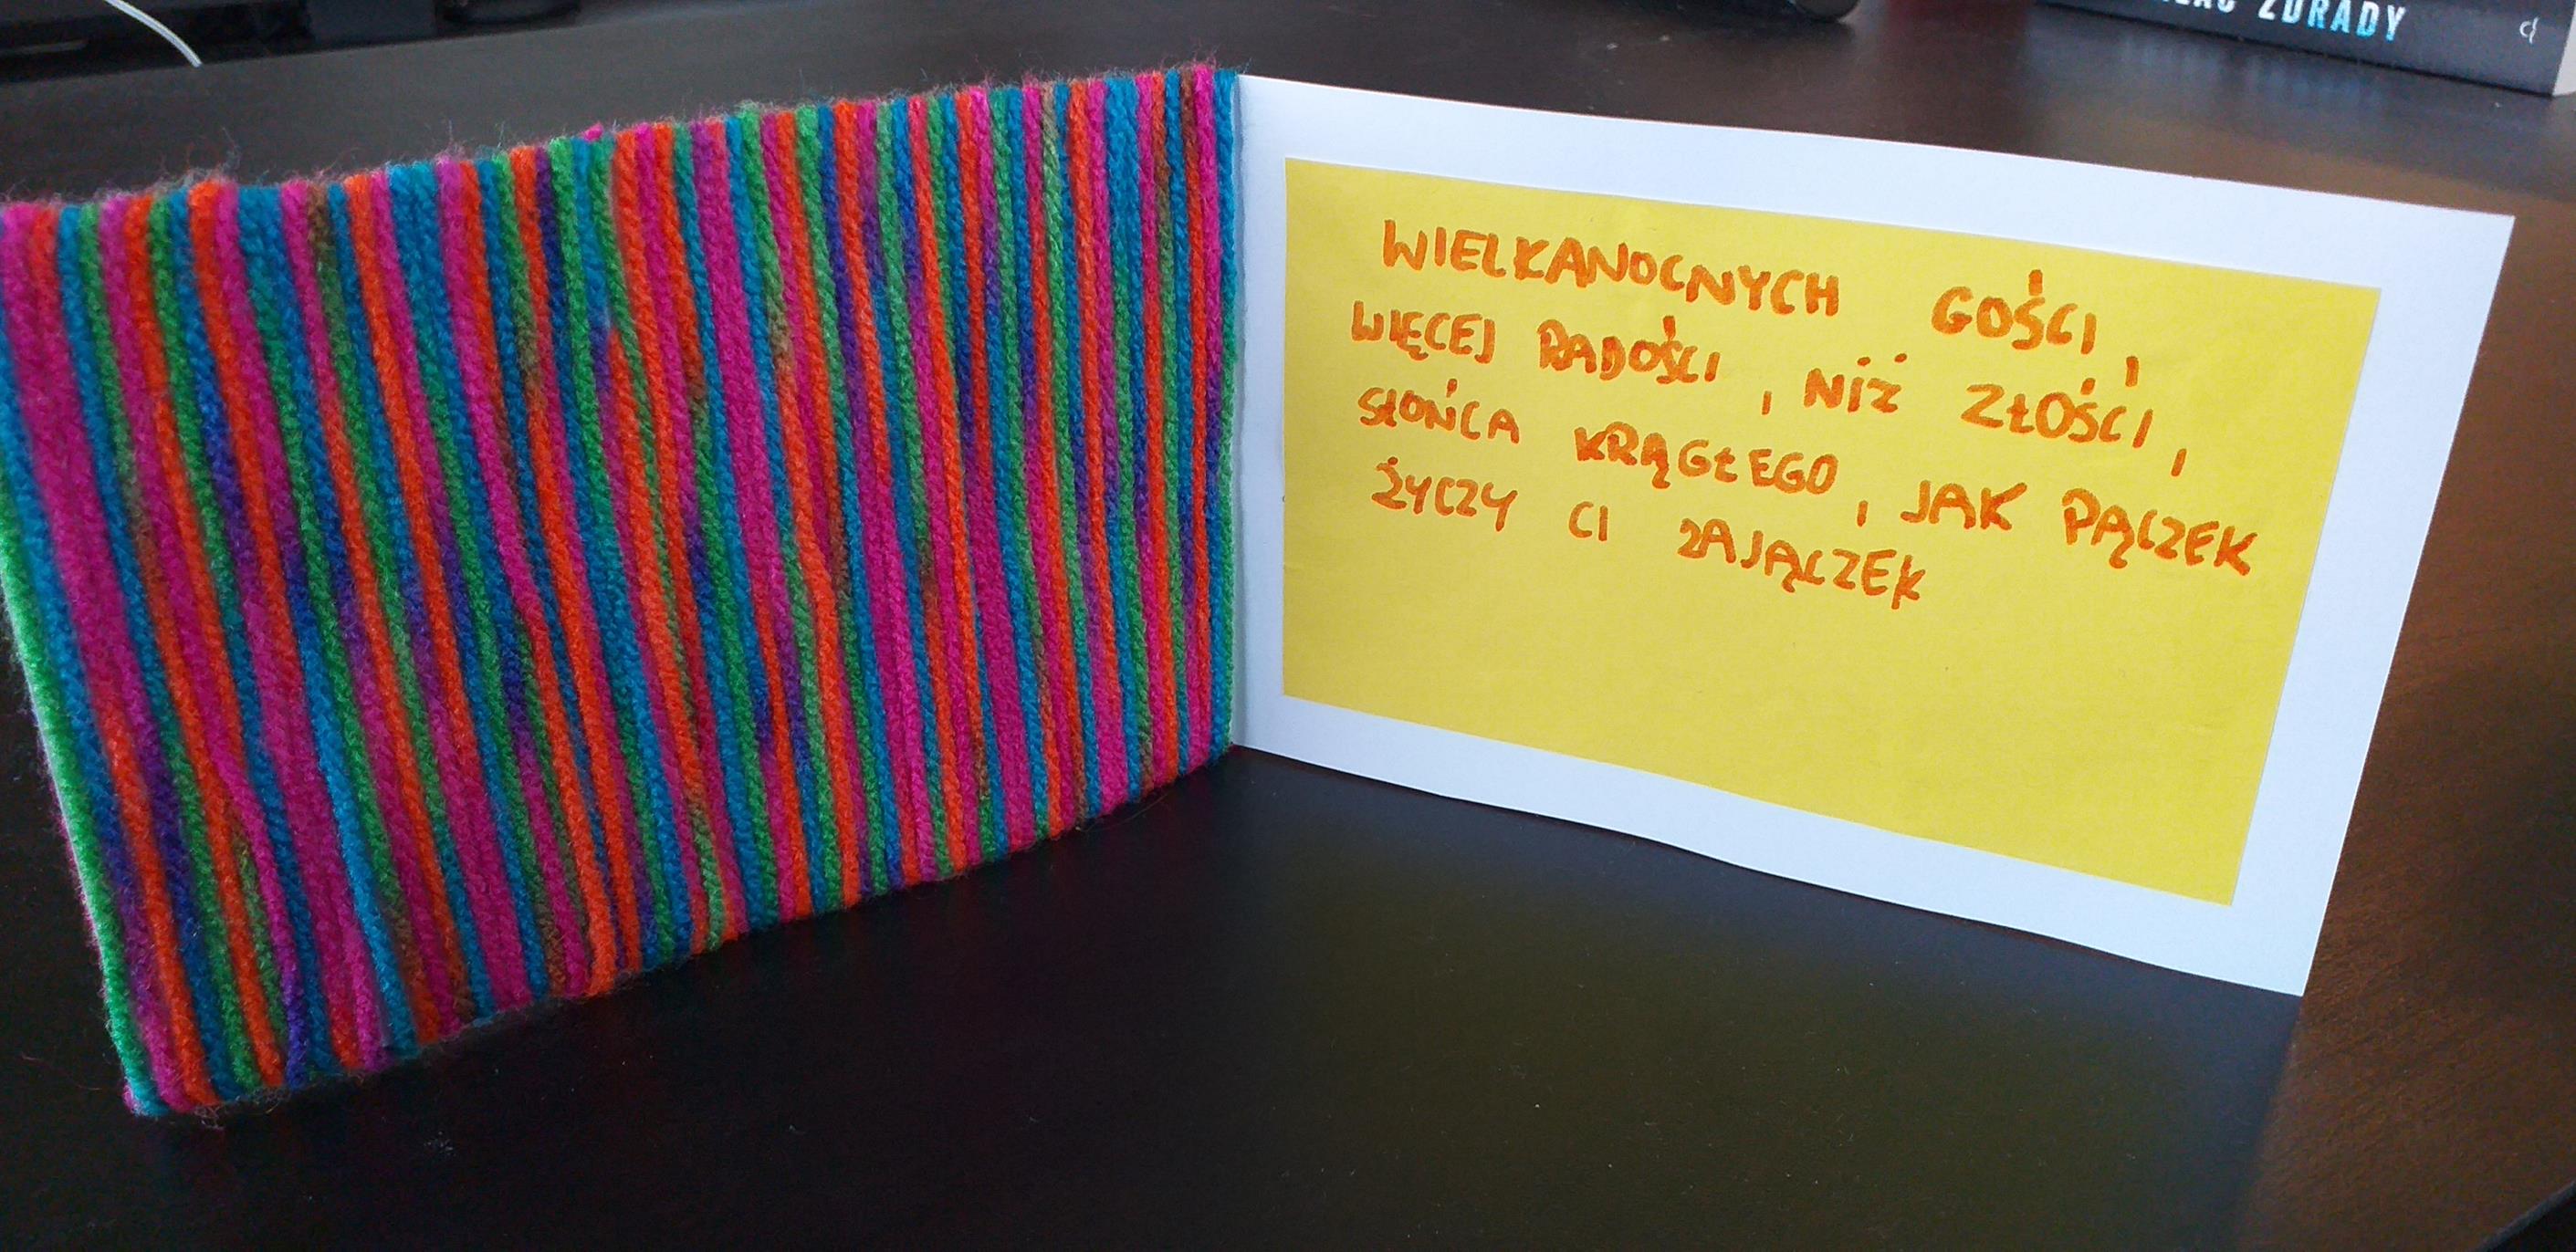 ZDRADY
WIELKANOCNYCH GOŚCI,
WIĘCEJ RADOŚCI, NIŻ ZŁOŚCI,
SŁOŃCA KRĄGŁEGO, JAK PĄCZEK
ŻYCZY CI ZAJĄCZEK